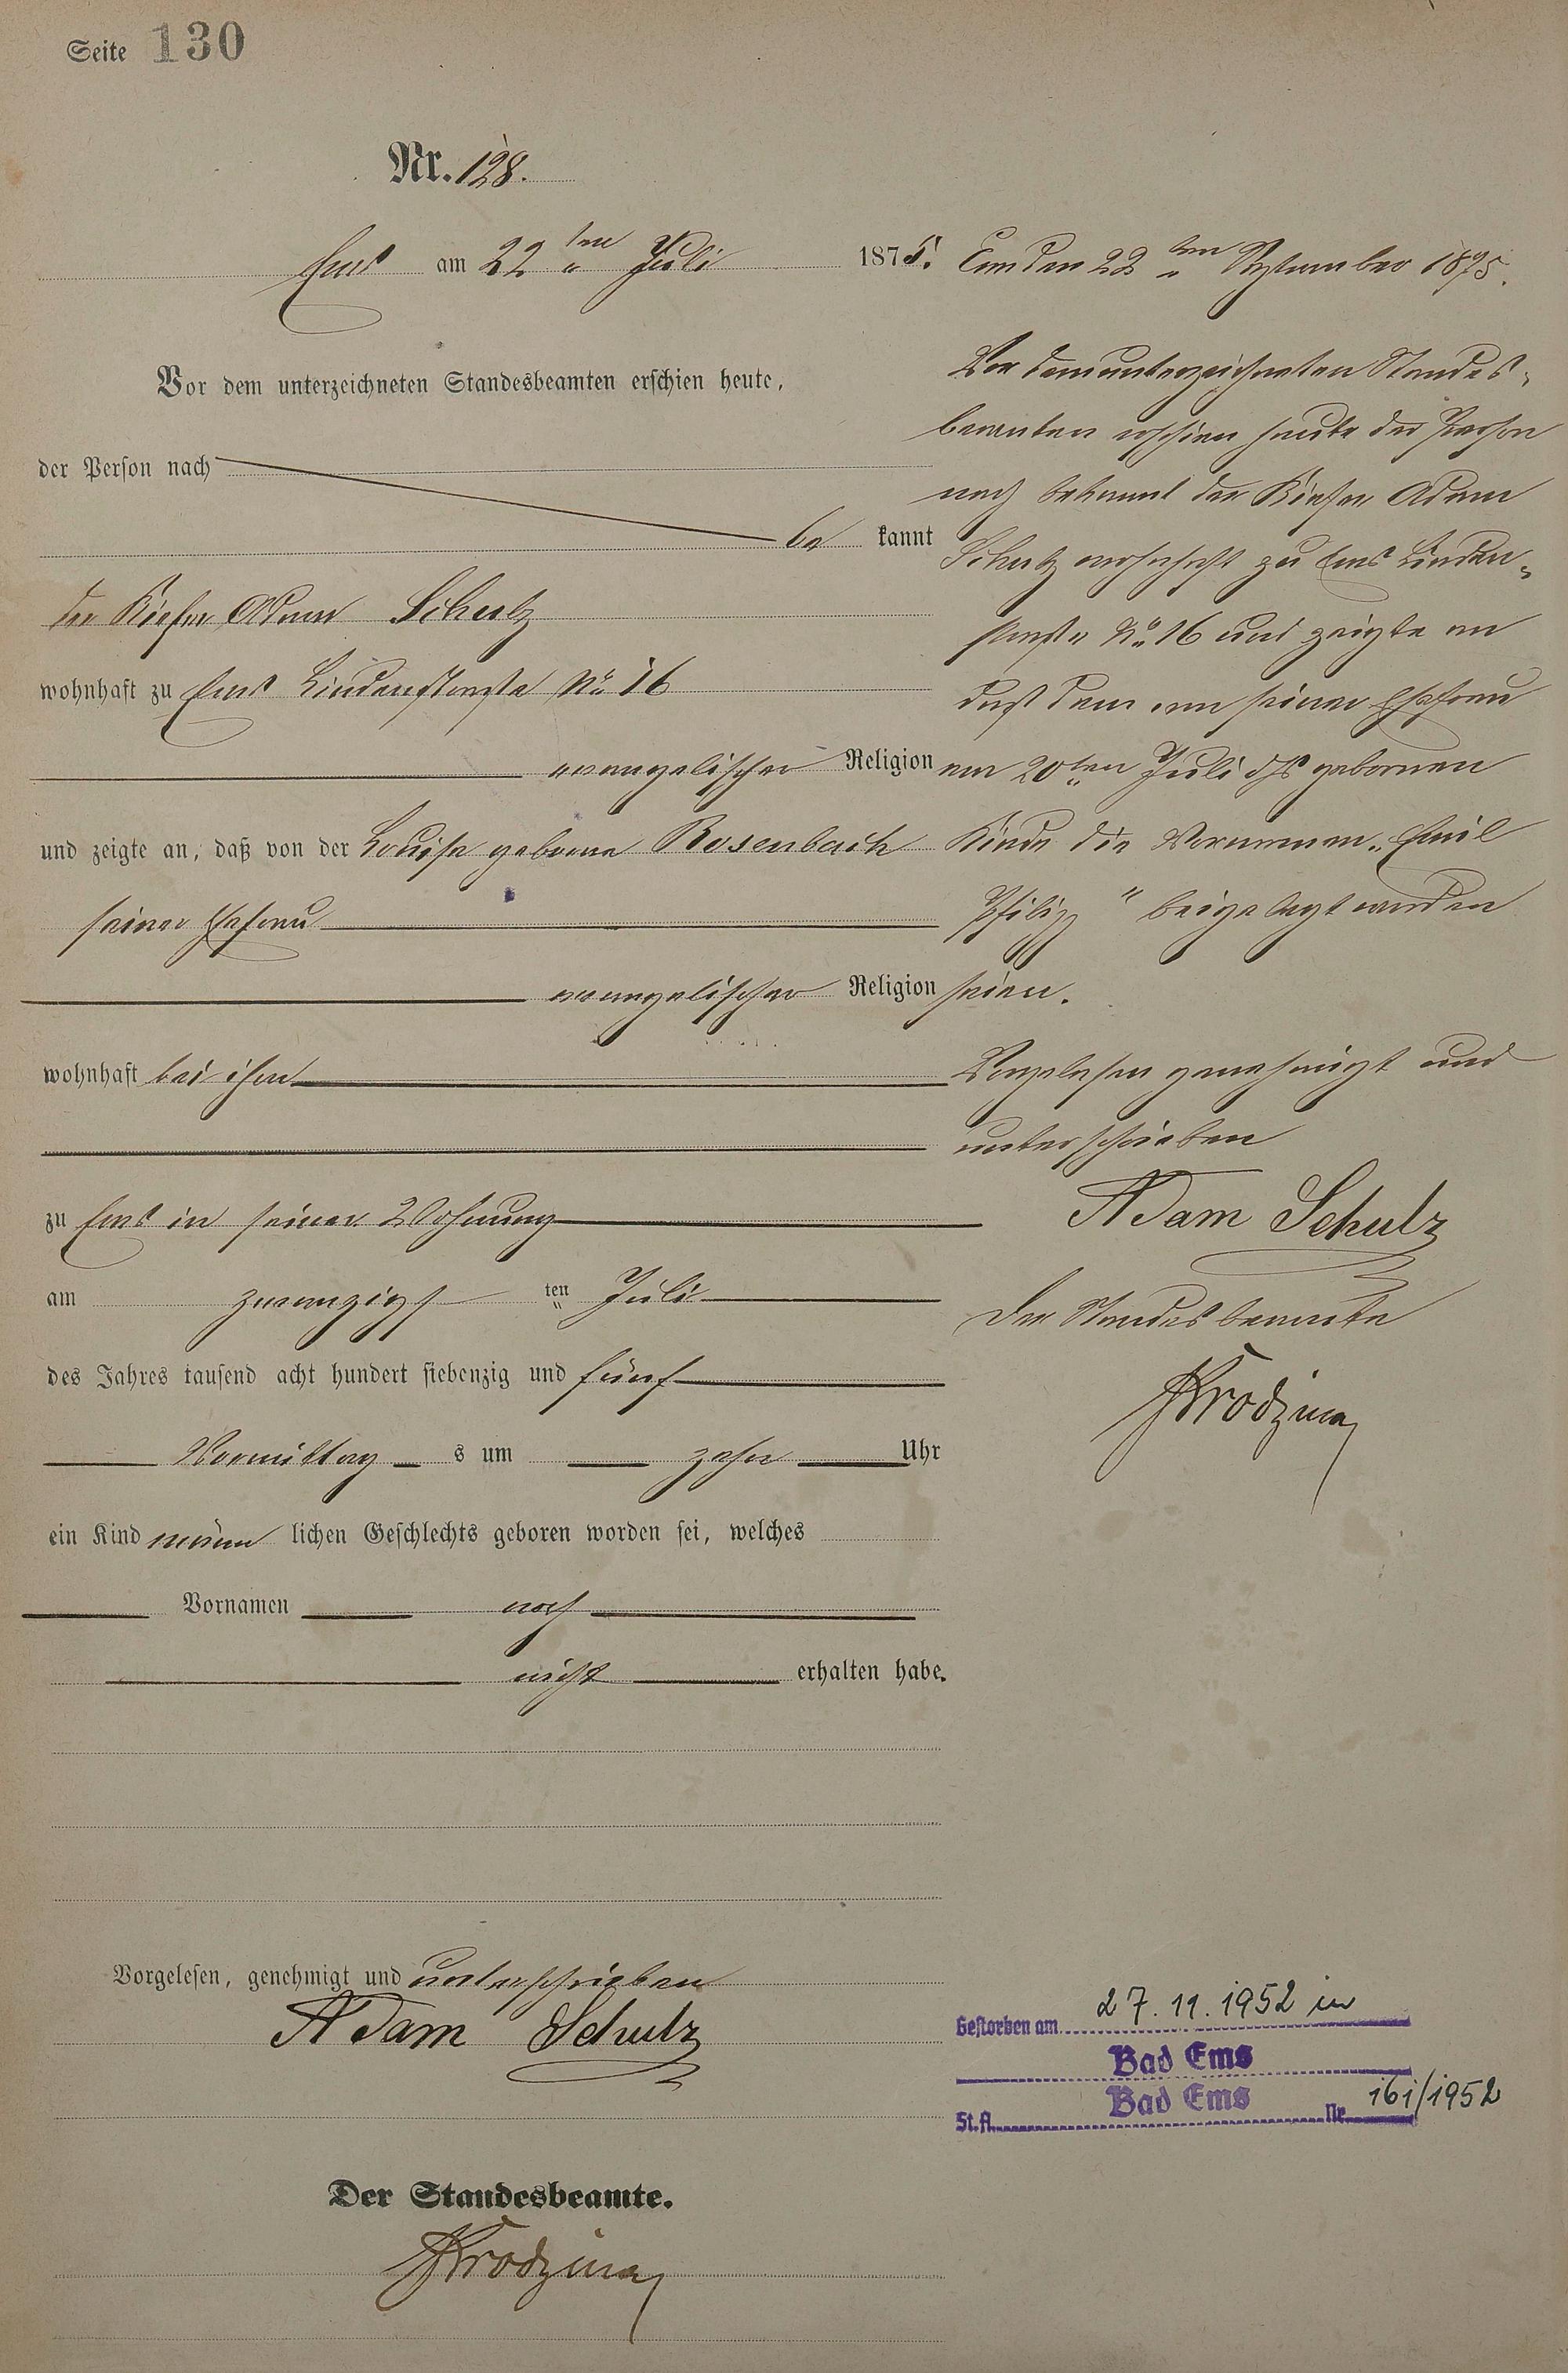 Seite 130
Nr. 128.
Ems am 22ten Juli 1875.
Vor dem unterzeichneten Standesbeamten erschien heute,
der Person nach
be kannt
der Kiefer Adam Schulz
wohnhaft zu Ems Lindenstraße No 16
evangelischer Religion
und zeigte an, daß von der Louise geborene Rosenbach
seiner Ehefrau
evangelischer Religion
wohnhaft bei ihm
zu Ems in seiner Wohnung
am zwanzigs ten Juli
des Jahres tausend acht hundert siebenzig und fünf
Vormittag s um zehn Uhr
ein Kind männ lichen Geschlechts geboren worden sei, welches
Vornamen noch
nicht erhalten habe.
Vorgelesen, genehmigt und unterschrieben
Adam Schulz
Der Standesbeamte.
Ems den 22ten September 1875.
Vor dem unterzeichneten Standes-
beamten erschien heute der Person
nach bekannt der Kiefer Adam
Schulz wohnhaft zu Ems Linden-
straße No 16 und zeigte an
daß dem von seiner Ehefrau
am 20ten Juli ds Js gebornen
Kinde die Vornamen „Emil
Philipp“ beigelegt worden
seien.
Vorgelesen genehmigt und
unterschrieben
Adam Schulz
Der Standesbeamte
Gestorben am 27.11.1952 in
Bad Ems
St.A. Bad Ems Nr. 161/1952